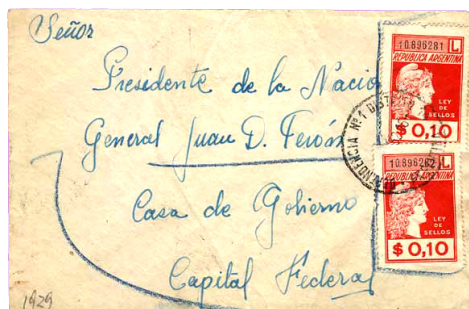 Señor
Presidente de la Nació
General Juan D. Perón
Casa de Gobierno
Capital Federal
1929
10.896281 L
REPUBLICA ARGENTINA
LEY
DE
SELLOS
$ 0,10
10.89628 L
REPUBLICA ARGENTINA
LEY
DE
SELLOS
$ 0,10
Nº1